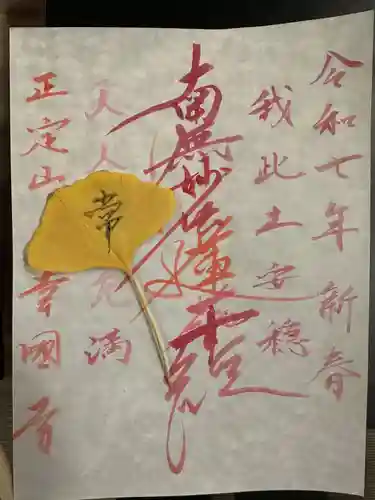 令和七年 新春
我此土安穏
南無妙法蓮華経
天人常充満
正定山 幸國寺